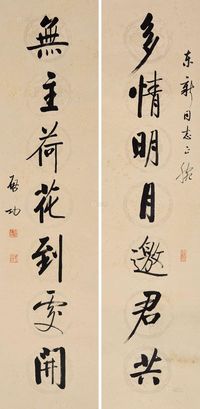 东新同志正腕
多情明月邀君共
無主荷花到處開
启功